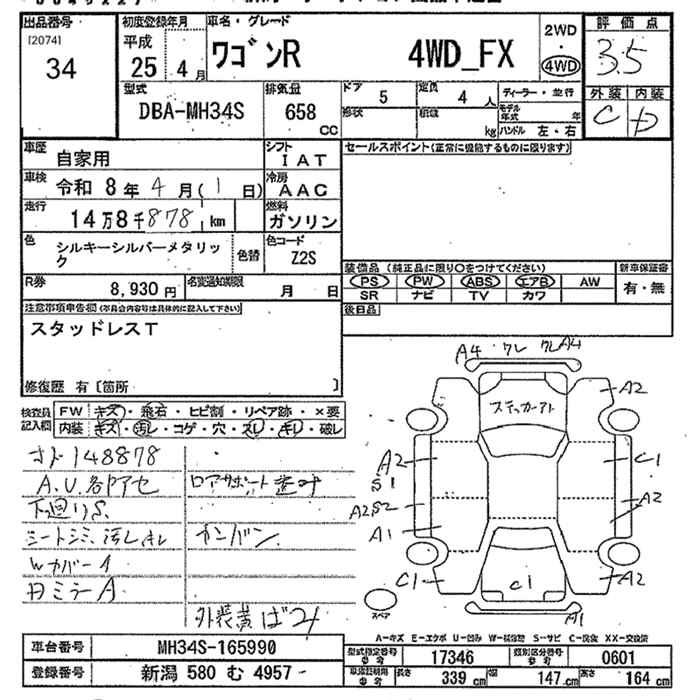 出品番号
[2074]
34
初度登録年月
平成
25 年 4 月
車名・グレード
ワゴンR 4WD_FX
2WD
・
4WD
評価点
3.5
外装 内装
C D
型式
DBA-MH34S
排気量
658 cc
ドア
5
定員
4 人
形状
積載
kg
ディーラー・並行
モデル年式 年
ハンドル 左・右
車歴
自家用
シフト
IAT
車検
令和 8年 4月( 1 日)
冷房
AAC
走行
14万8千878 km
燃料
ガソリン
色
シルキーシルバーメタリック
色替
色コード
Z2S
R券
8,930 円
名変通知期限
月 日
セールスポイント(正常に機能するものに限ります)
装備品(純正品に限り〇をつけてください)
PS PW ABS エアB AW
SR ナビ TV カワ
新車保証書
有・無
後日品
注意事項申告欄(不具合内容等は具体的に記入して下さい)
スタッドレスT
修復歴 有[箇所 ]
検査員記入欄
FW キズ・飛石・ヒビ割・リペア跡・×要
内装 キズ・汚レ・コゲ・穴・スレ・キレ・破レ
148878
A.U.各P アセ
下廻りS
シートシミ 汚レ
Wカバーイ
ミラーA
ロアサポート
カンバン
A4・ワレ ワレA4
ステッカーアト
A2
A2
S1
C1
A2S2
A2
A1
C1
C1
A2
A1
スペア
A-キズ E-エクボ U-凹み W-補修跡 S-サビ C-腐食 XX-交換済
車台番号
MH34S-165990
登録番号
新潟 580 む 4957
型式指定番号
参考
17346
類別区分番号
参考
0601
車検証明用
参考
長さ
339 cm
幅
147 cm
高さ
164 cm